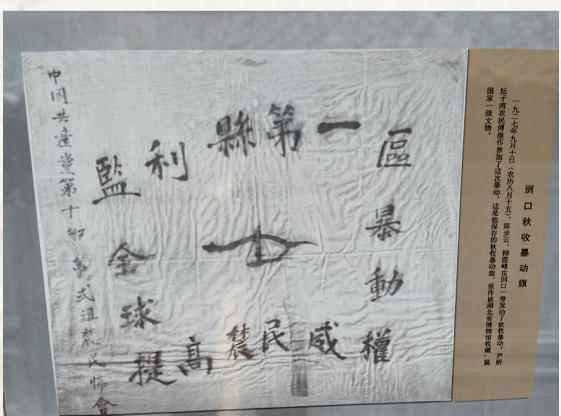 剅口秋收暴动旗
一九二七年九月十日（农历八月十五），陈步云、柳霞峰在剅口一带发动了秋收暴动，尹桥
坛子湾农民傅继作参加了这次暴动，这是他保存的秋收暴动旗，原件被湖北省博物馆收藏，属
国家一级文物。
監利縣第一區暴動
全球提高農民威權
中國共產黨第十第弍組農民協會